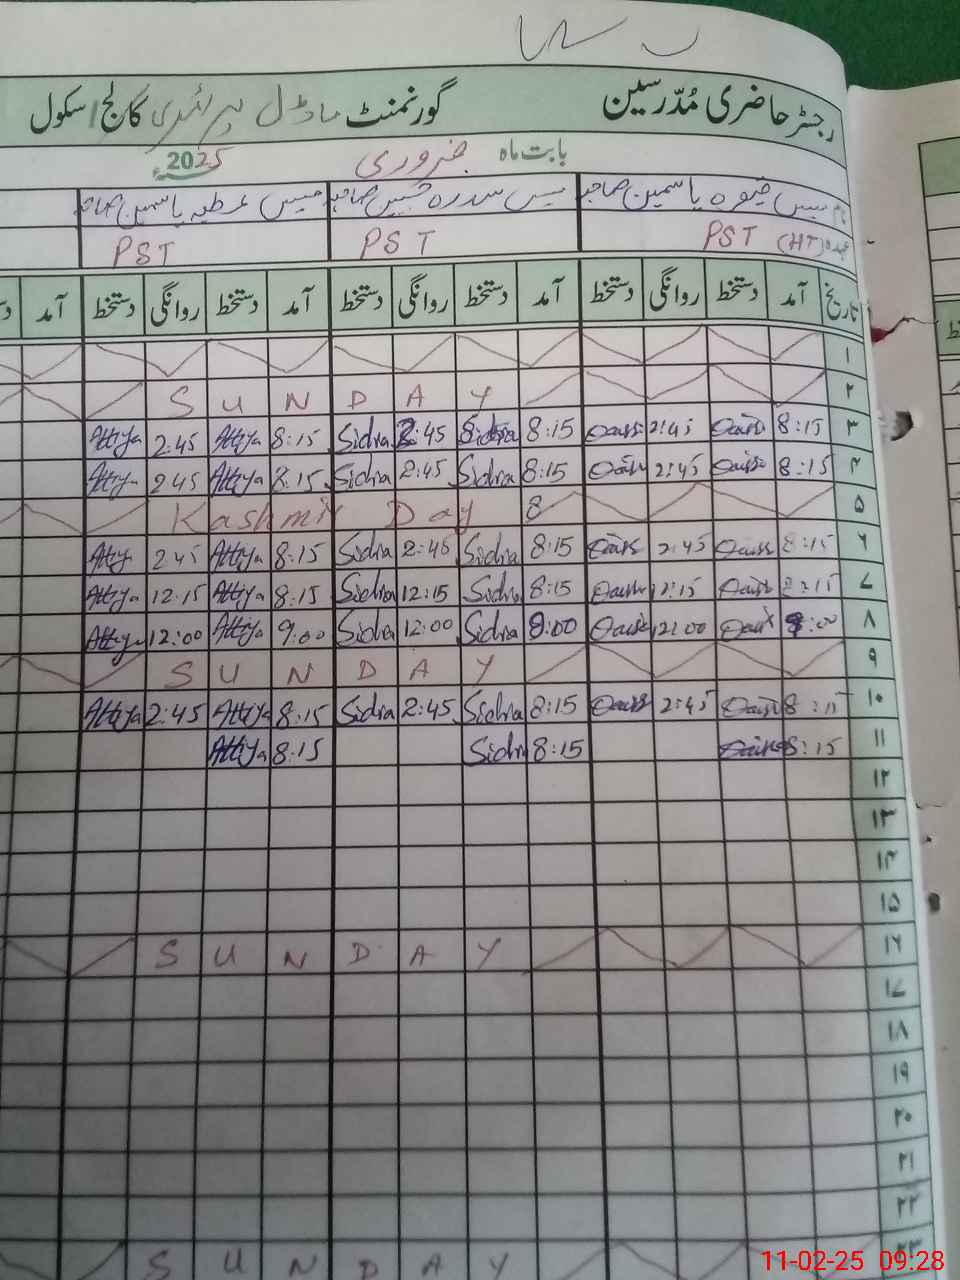 رجسٹر حاضری مُدّرسین گورنمنٹ ماڈل پرائمری کالج/سکول
بابت ماہ فروری 2025ء
نام مِس یاسمین صاحبہ مِس سدرہ صاحبہ مِس عطیہ یاسمین صاحبہ
عہدہ PST (HT) PST PST
تاریخ آمد دستخط روانگی دستخط آمد دستخط روانگی دستخط آمد دستخط روانگی دستخط آمد
۱
۲ S U N D A Y
۳ 8:15 2:45 8:15 Sidra 2:45 Sidra 8:15 Attiya 2:45 Attiya
۴ 8:15 2:45 8:15 Sidra 2:45 Sidra 8:15 Attiya 2 45 Attiya
۵ Kashmir Day 8
۶ 8:15 2:45 8:15 Sidra 2:45 Sidra 8:15 Attiya 2 45 Attiy
۷ 8:15 12:15 8:15 Sidra 12:15 Sidra 8:15 Attiya 12:15 Attiya
۸ 9:00 12:00 9:00 Sidra 12:00 Sidra 9:00 Attiya 12:00 Attiya
۹ S U N D A Y
۱۰ 8:15 2:45 8:15 Sidra 2:45 Sidra 8:15 Attiya 2:45 Attiya
۱۱ 8:15 8:15 Sidra 8:15 Attiya
۱۲
۱۳
۱۴
۱۵
۱۶ S U N D A Y
۱۷
۱۸
۱۹
۲۰
۲۱
۲۲
۲۳ S U N D A Y
11-02-25 09:28